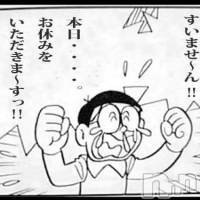 すいませ~ん!!
本日・・・・。
お休みを
いただきま~すっ!!